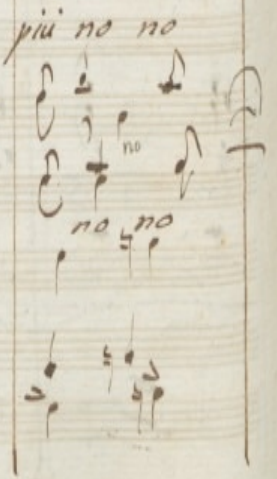 più no no
no
no no